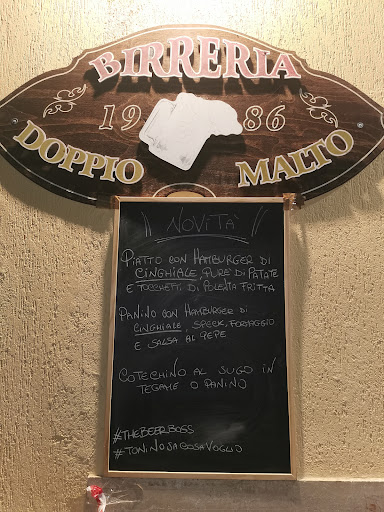 BIRRERIA
1986
DOPPIO MALTO
NOVITÀ
PIATTO CON HAMBURGER DI
CINGHIALE, PURÈ DI PATATE
E TOCCHETTI DI POLENTA FRITTA
PANINO CON HAMBURGER DI
CINGHIALE, SPECK, FORMAGGIO
E SALSA AL PEPE
COTECHINO AL SUGO IN
TEGAME O PANINO
#THEBEERBOGS
#TONINOSACOSAVOGLIO